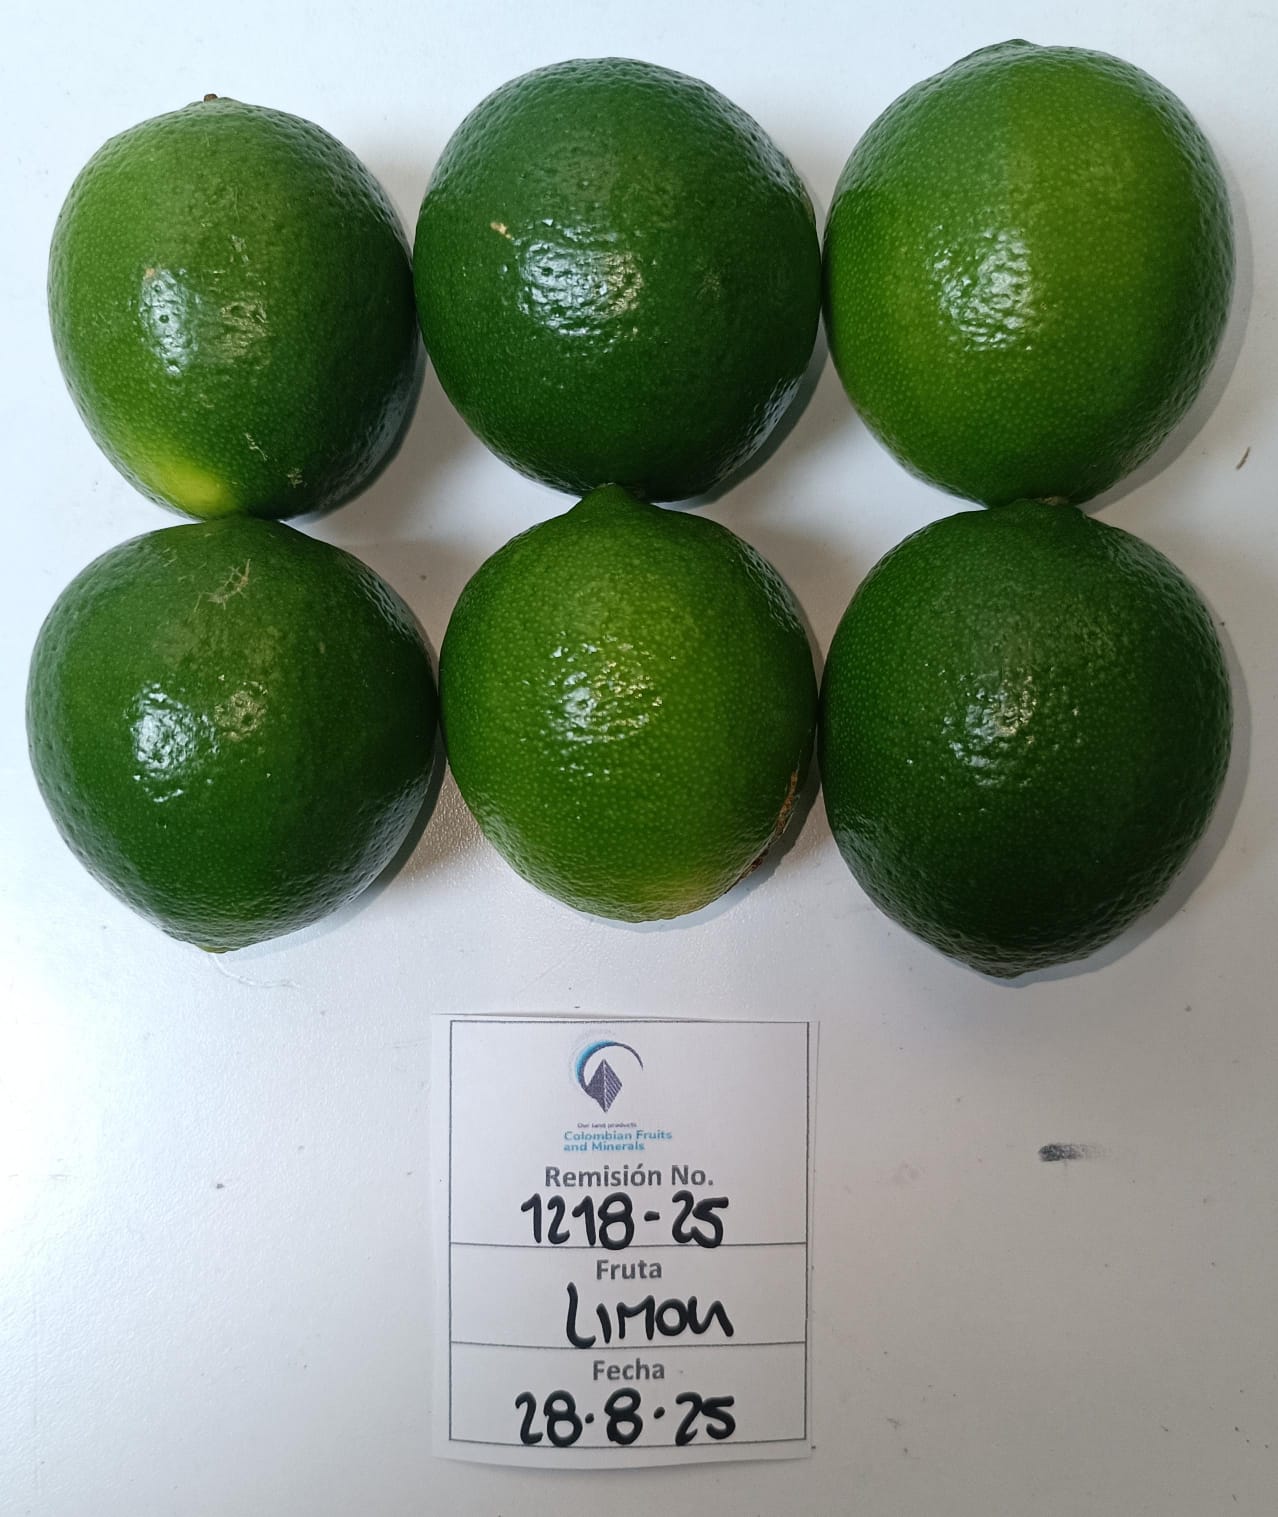 Our land products
Colombian Fruits
and Minerals
Remisión No.
1218-25
Fruta
LIMON
Fecha
28.8.25